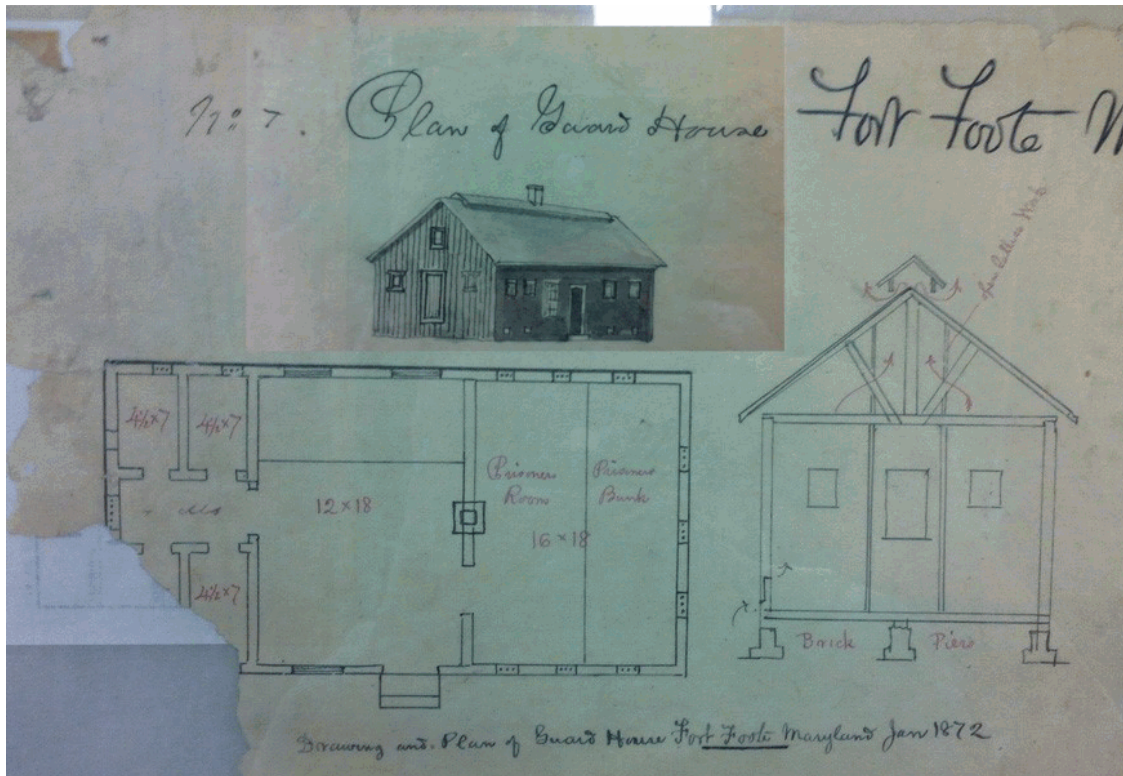 No. 7. Plan of Guard House Fort Foote M
4½×7
4½×7
12×18
4½×7
Prisoners
Room
Prisoners
Bunk
16×18
Brick Piers
Drawing and Plan of Guard House Fort Foote Maryland Jan 1872